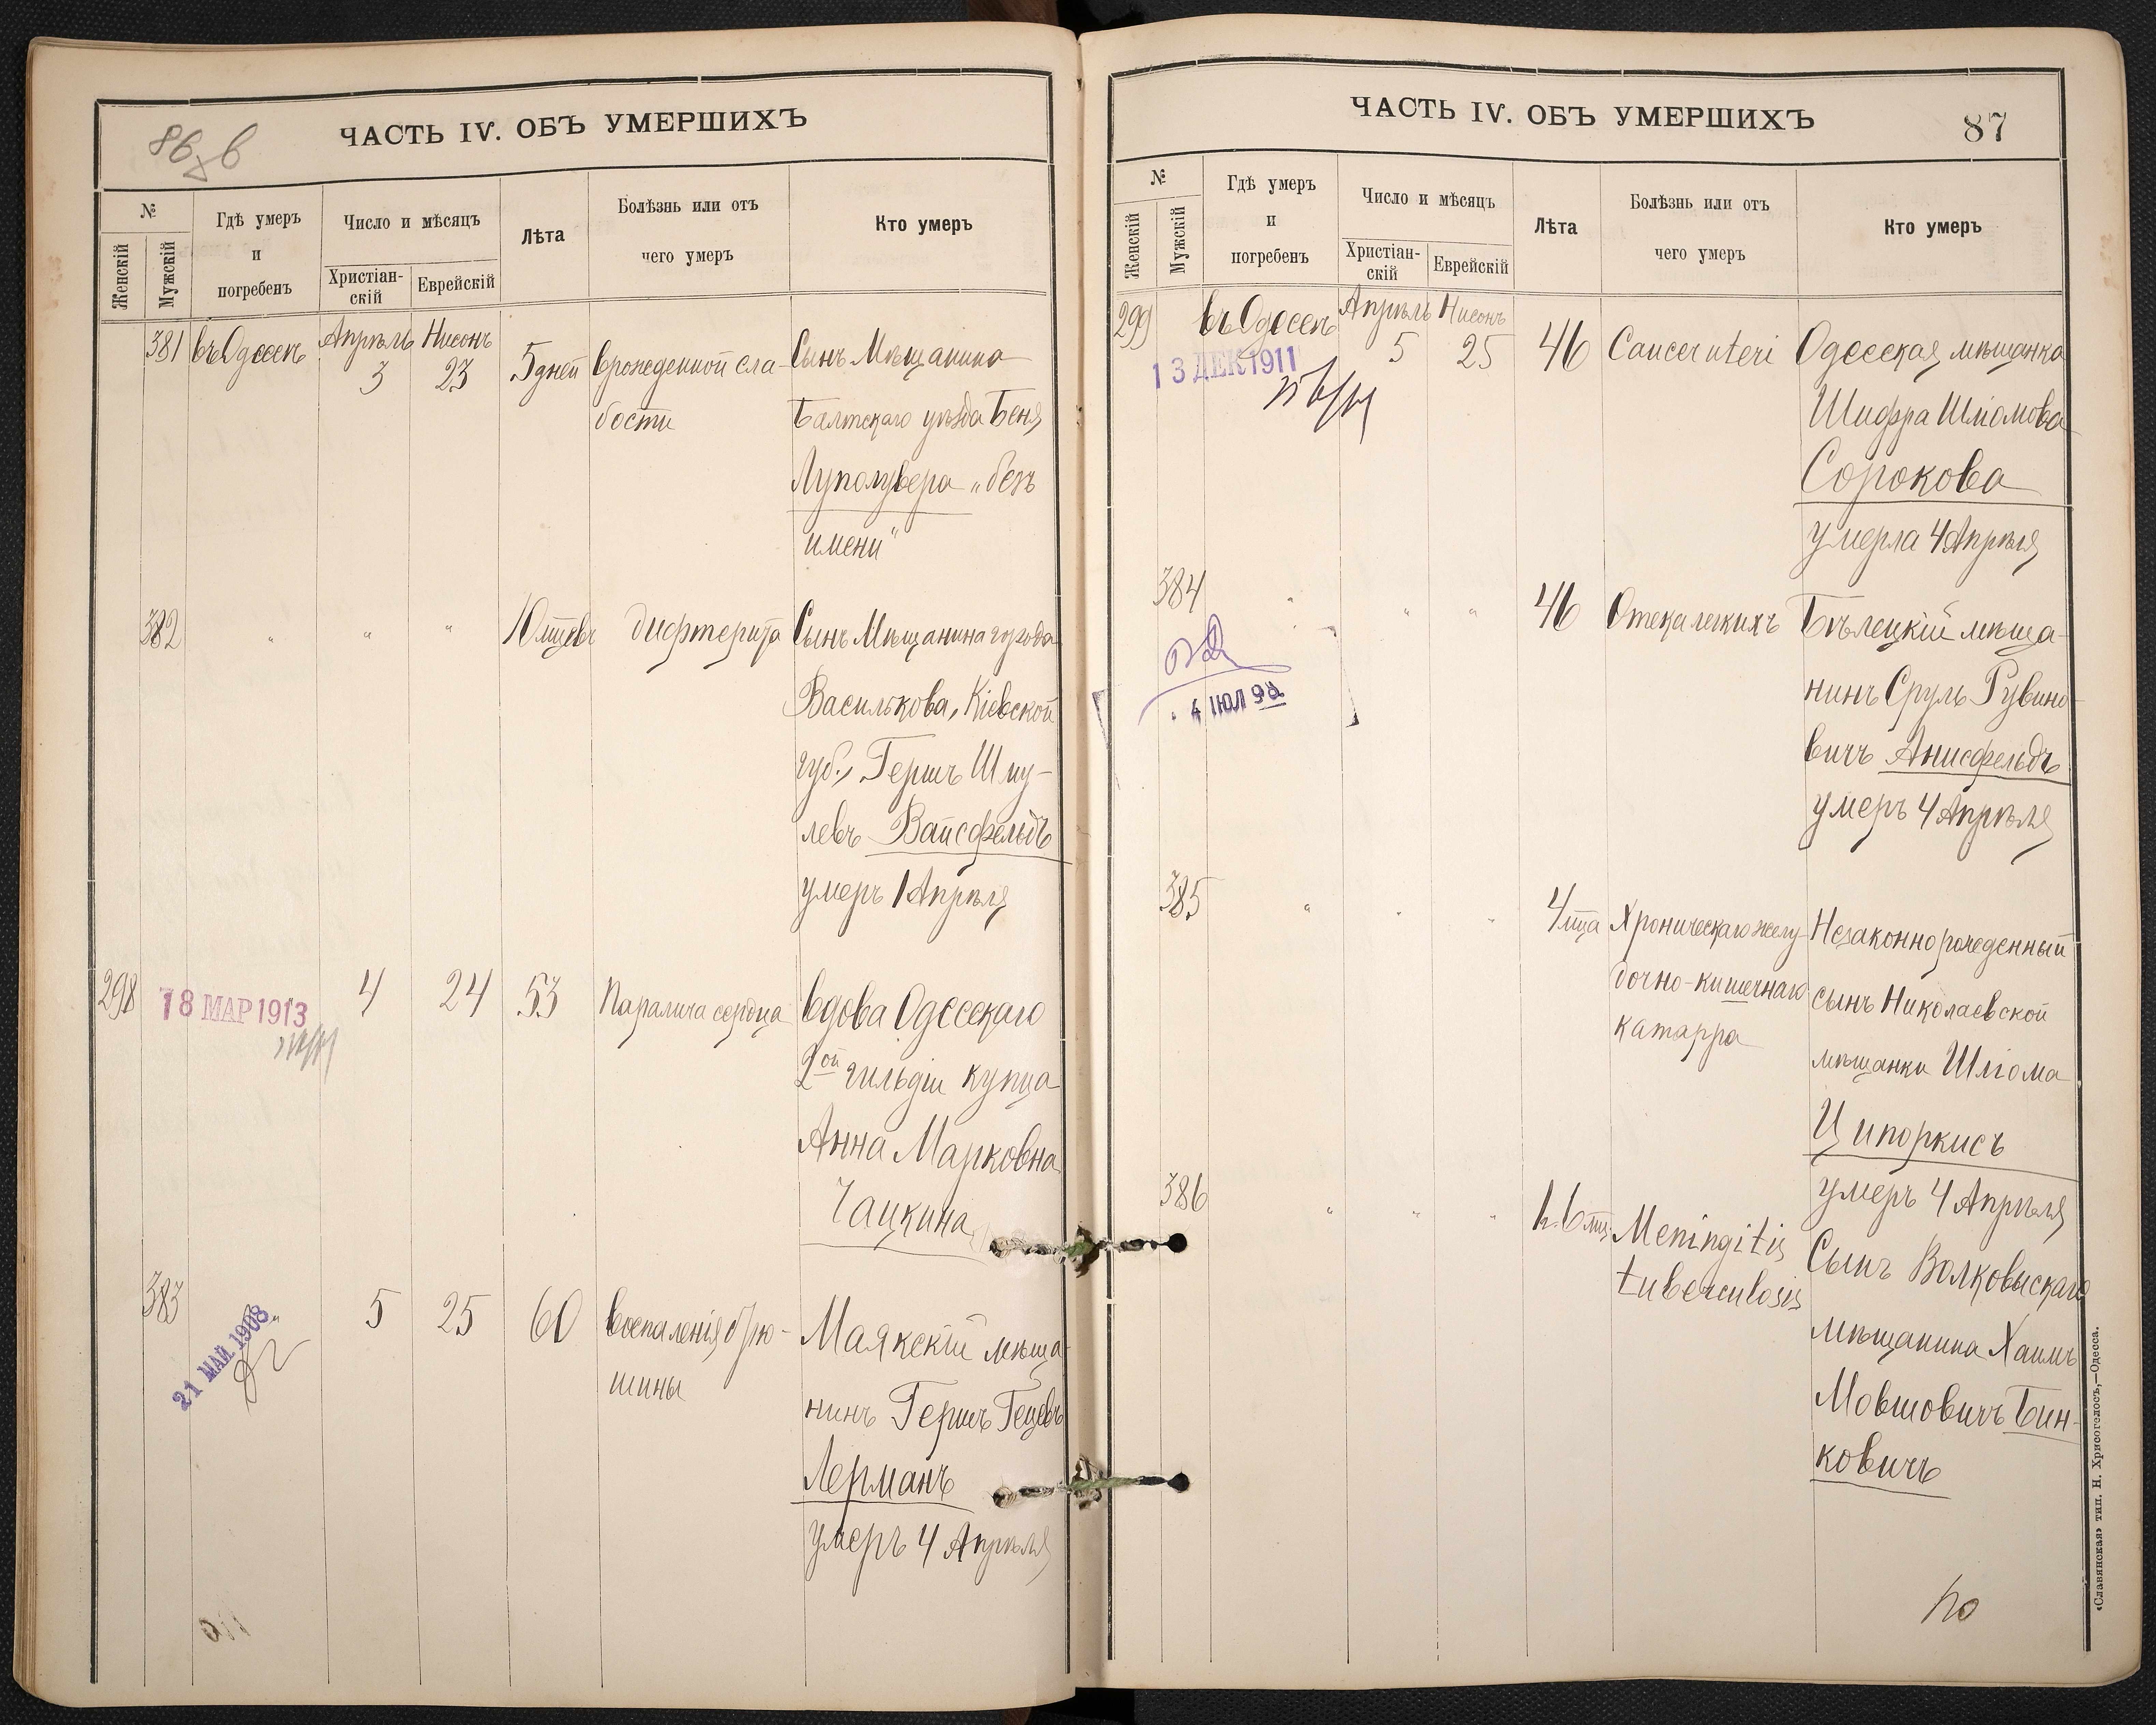 ЧАСТЬ IV. ОБЪ УМЕРШИХЪ
№
Женскій
Мужскій
Гдѣ умеръ
и
погребенъ
Число и мѣсяцъ
Христіан-
скій
Еврейскій
Лѣта
Болѣзнь или отъ
чего умеръ
Кто умеръ
381
въ Одессѣ
Апрѣль
3
Нисонъ
23
5 дней
врожденной сла-
бости
Сынъ Мѣщанина
Балтскаго уѣзда Беня
Луполувера „безъ
имени“
382
" " "
10 мцевъ
дифтерита
Сынъ Мѣщанина города
Василькова, Кіевской
губ., Гершъ Шму-
левъ Вайсфельдъ
умеръ 1 Апрѣля
298
18 МАР 1913
4
24
53
Паралича сердца
Вдова Одесскаго
2ой гильдіи купца
Анна Марковна
Чацкина
383
21 МАЙ 1908
"
5
25
60
Воспаленія брю-
шины
Маякскій мѣща-
нинъ Гершъ Гецевъ
Лерманъ
умеръ 4 Апрѣля
ЧАСТЬ IV. ОБЪ УМЕРШИХЪ
87
№
Женскій
Мужскій
Гдѣ умеръ
и
погребенъ
Число и мѣсяцъ
Христіан-
скій
Еврейскій
Лѣта
Болѣзнь или отъ
чего умеръ
Кто умеръ
299
въ Одессѣ
13 ДЕК 1911
Апрѣль
5
Нисонъ
25
46
Cancer uteri
Одесская мѣщанка
Шифра Шліомова
Сорокова
умерла 4 Апрѣля
384
4 ИЮЛ 98
" " "
46
Отека легкихъ
Бѣлецкій мѣща-
нинъ Сруль Рувино-
вичъ Анисфельдъ
умеръ 4 Апрѣля
385
" " "
4 мца
Хроническаго желу-
дочно-кишечнаго
катарра
Незаконнорожденный
сынъ Николаевской
мѣщанки Шліома
Ципоркисъ
умеръ 4 Апрѣля
386
" " "
Meningitis
tuberculosis
Сынъ Волковыскаго
мѣщанина Хаимъ
Мовшовичъ Бин-
ковичъ
«Славянская» тип. Н. Хрисогелосъ,—Одесса.